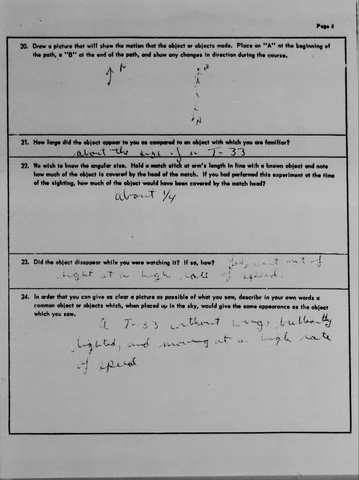 Page 4
20. Draw a picture that will show the motion that the object or objects made. Place an "A" at the beginning of
the path, a "B" at the end of the path, and show any changes in direction during the course.
N
21. How large did the object appear to you as compared to an object with which you are familiar?
about the size of a T-33
22. We wish to know the angular size. Hold a match stick at arm's length in line with a known object and note
how much of the object is covered by the head of the match. If you had performed this experiment at the time
of the sighting, how much of the object would have been covered by the match head?
about 1/4
23. Did the object disappear while you were watching it? If so, how? Yes, went out of
sight at a high rate of speed.
24. In order that you can give as clear a picture as possible of what you saw, describe in your own words a
common object or objects which, when placed up in the sky, would give the same appearance as the object
which you saw.
A T-33 without wings, brilliantly
lighted, and moving at a high rate
of speed